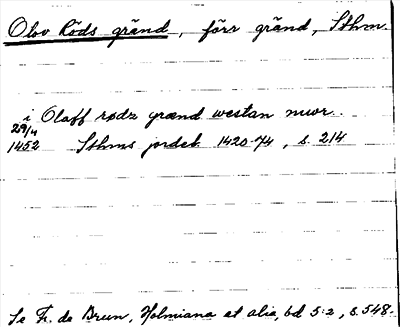 Olov Röds gränd, förr gränd, Sthm.
i Olaff rødz grænd westan mwr.
29/4
1452 Sthms jordeb. 1420-74, s. 214
Se Fr. de Brun, Holmiana et alia, bd 5:2, s. 548.